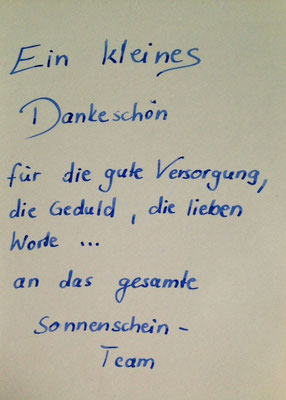 Ein kleines
Dankeschön
für die gute Versorgung,
die Geduld, die lieben
Worte ...
an das gesamte
Sonnenschein-
Team